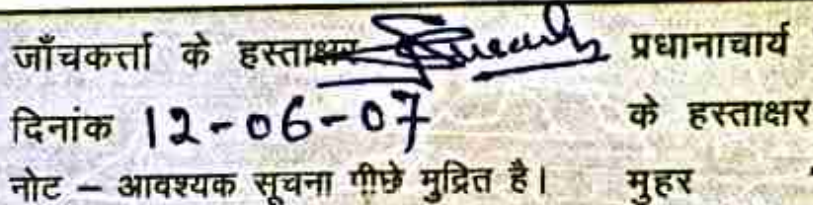 जाँचकर्त्ता के हस्ताक्षर प्रधानाचार्य
दिनांक 12-06-07 के हस्ताक्षर
नोट – आवश्यक सूचना पीछे मुद्रित है। मुहर